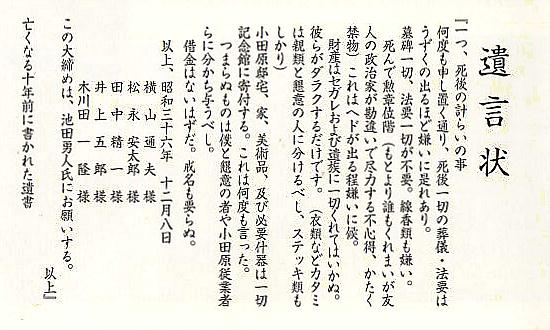 遺言状
『一つ、死後の計らいの事
何度も申し置く通り、死後一切の葬儀・法要は
うずくの出るほど嫌いに是れあり。
墓碑一切、法要一切が不要。線香類も嫌い。
死んで勲章位階(もとより誰もくれまいが友
人の政治家が勘違いで尽力する不心得、かたく
禁物)これはヘドが出る程嫌いに候。
財産はセガレおよび遺族に一切くれてはいかぬ。
彼らがダラクするだけです。(衣類などカタミ
は親類と懇意の人に分けるべし、ステッキ類も
しかり)
小田原邸宅、家、美術品、及び必要什器は一切
記念館に寄付する。これは何度も言った。
つまらぬものは僕と懇意の者や小田原従業者
らに分かち与うべし。
借金はないはずだ。戒名も要らぬ。
以上、昭和三十六年 十二月八日
横山通夫様
松永安太郎様
田中精一様
井上五郎様
木川田一隆様
この大締めは、池田勇人氏にお願いする。
以上』
亡くなる十年前に書かれた遺書